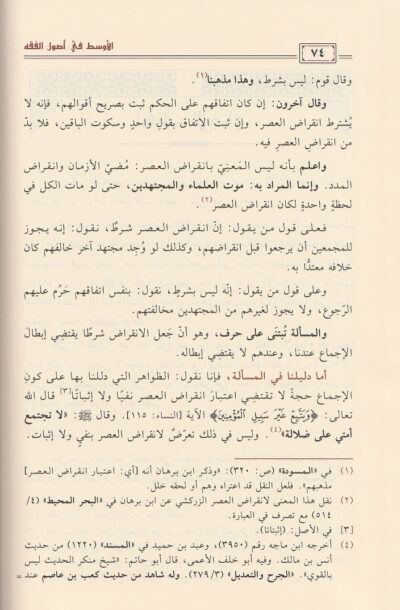 ٧٤
الأوسط في أصول الفقه
وقال قوم: ليس بشرط، وهذا مذهبنا(١).
وقال آخرون: إن كان اتفاقهم على الحكم ثبت بصريح أقوالهم، فإنه لا
يُشترط انقراض العصر، وإن ثبت الاتفاق بقول واحدٍ وسكوت الباقين، فلا بدّ
من انقراض العصر فيه.
واعلم بأنه ليس المَعنِيّ بانقراض العصر: مُضيّ الأزمان وانقراض
المدد. وإنما المراد به: موت العلماء والمجتهدين، حتى لو مات الكل في
لحظةٍ واحدةٍ لكان انقراض العصر(٢).
فعلى قول من يقول: إنّ انقراض العصر شرطٌ، نقول: إنه يجوز
للمجمعين أن يرجعوا قبل انقراضهم، وكذلك لو وُجد مجتهد آخر خالفهم كان
خلافه معتدًّا به.
وعلى قول من يقول: إنّه ليس بشرطٍ، نقول: بنفس اتفاقهم حَرُم عليهم
الرّجوع، ولا يجوز لغيرهم من المجتهدين مخالفتهم.
والمسألة تُبتَنَى على حرف، وهو أنّ جَعل الانقراض شرطًا يقتضِي إبطالَ
الإجماع عندنا، وعندهم لا يقتضِي إبطاله.
أما دليلنا في المسألة، فإنا نقول: الظواهر التي دللنا بها على كونِ
الإجماع حجةً لا تقتضِي اعتبارَ انقراض العصر نفيًا ولا إثباتًا(٣) قال الله
تعالى: ﴿وَيَتَّبِعْ غَيْرَ سَبِيلِ الْمُؤْمِنِينَ﴾ الآية [النساء: ١١٥]. وقال ﷺ: «لا تجتمع
أمتي على ضلالة»(٤). وليس في ذلك تعرّضٌ لانقراض العصر بنفيٍ ولا إثبات.
(١) في «المسودة» (ص: ٣٢٠): «وذكر ابن برهان أنه [أي: اعتبار انقراض العصر]
مذهبهم». فلعل النقل قد اعتراه وهم أو لحقه خلل.
(٢) نقل هذا المعنى لانقراض العصر الزركشي عن ابن برهان في «البحر المحيط» (٤/
٥١٤) مع تصرف في العبارة.
[٣] في الأصل: (إثباتا).
(٤) أخرجه ابن ماجه رقم (٣٩٥٠)، وعبد بن حميد في «المسند» (١٢٢٠) من حديث
أنس بن مالك. وفيه أبو خلف الأعمى، قال أبو حاتم: «شيخ منكر الحديث ليس
بالقوي». «الجرح والتعديل» (٢٧٩/٣). وله شاهد من حديث كعب بن عاصم عند =